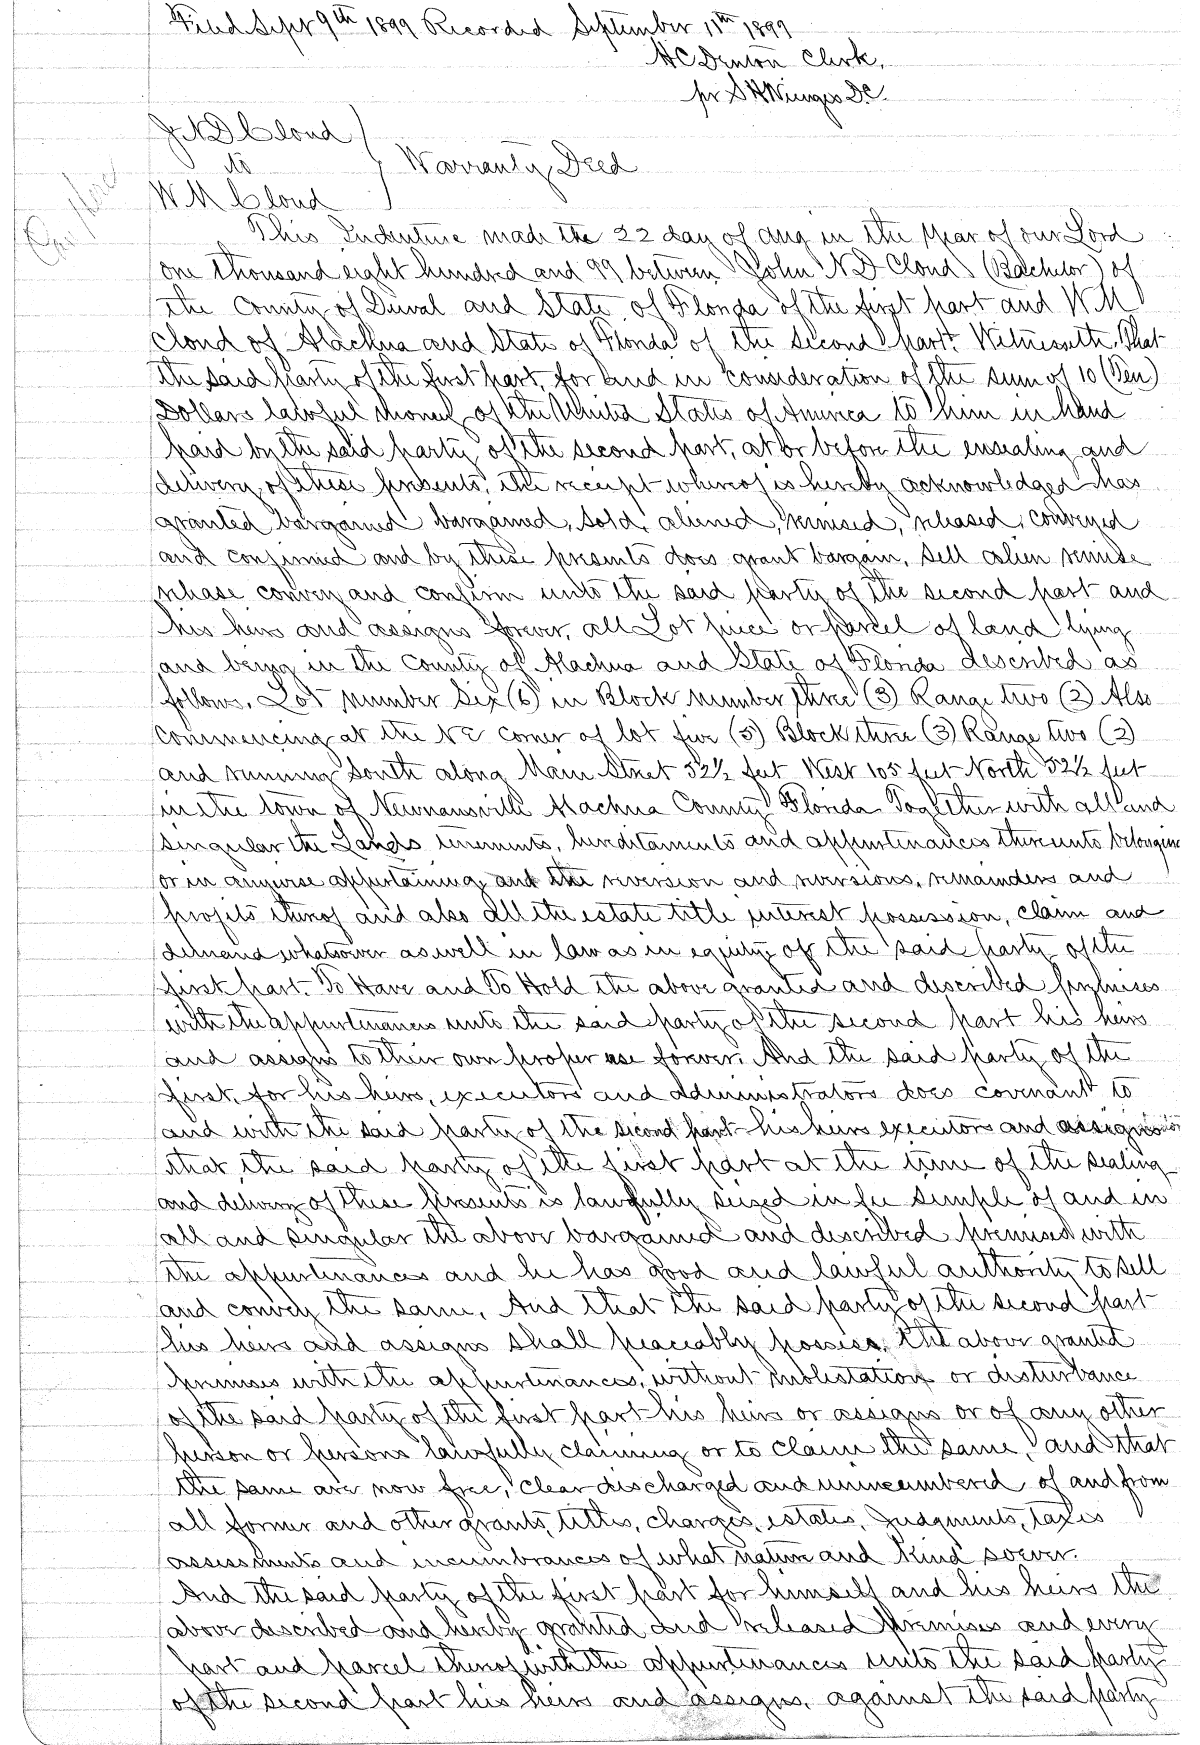 Filed Sept 9th 1899 Recorded September 11th 1899
H C Denton Clerk,
pr S H Wienges D.C.
J. N D Cloud
to
Warranty Deed
W M Cloud
This Indenture made the 22 day of Aug in the year of our Lord
one thousand eight hundred and 99 between John N D Cloud (Bachelor) of
the County of Duval and State of Florida of the first part and W M
Cloud of Alachua and State of Florida of the second part. Witnesseth, That
the said party of the first part, for and in consideration of the sum of 10 (Ten)
Dollars lawful money of the United States of America to him in hand
paid by the said party of the second part, at or before the ensealing and
delivery of these presents, the receipt whereof is hereby acknowledged has
granted bargained bargained, sold, aliened, remised, released, conveyed
and confirmed and by these presents does grant bargain, sell alien remise
release convey and confirm unto the said party of the second part and
his heirs and assigns forever, all Lot piece or parcel of land lying
and being in the County of Alachua and State of Florida described as
follows. Lot number Six (6) in Block number three (3) Range two (2) Also
Commencing at the NE corner of lot five (5) Block three (3) Range two (2)
and running South along Main Street 52½ feet West 105 feet North 52½ feet
in the town of Newnansville Alachua County Florida Together with all and
singular the Lands tenements, hereditaments and appurtenances thereunto belonging
or in anywise appertaining, and the reversion and reversions, remainders and
profits thereof and also all the estate title interest possession, claim and
demand whatsoever as well in law as in equity of the said party of the
first part. To Have and To Hold the above granted and described premises
with the appurtenances unto the said party of the second part his heirs
and assigns to their own proper use forever. And the said party of the
first, for his heirs, executors and administrators does covenant to
and with the said party of the second part his heirs executors and assigns
that the said party of the first part at the time of the sealing
and delivery of these presents is lawfully seized in fee simple of and in
all and singular the above bargained and described premises with
the appurtenances and he has good and lawful authority to sell
and convey the same, And that the said party of the second part
his heirs and assigns shall peaceably possess the above granted
premises with the appurtenances, without molestation or disturbance
of the said party of the first part his heirs or assigns or of any other
person or persons lawfully claiming or to claim the same, and that
the same are now free, clear discharged and unincumbered of and from
all former and other grants, titles, charges, estates, Judgments, taxes
assessments and incumbrances of what nature and kind soever.
And the said party of the first part for himself and his heirs the
above described and hereby granted and released premises and every
part and parcel thereof with the appurtenances unto the said party
of the second part his heirs and assigns, against the said party